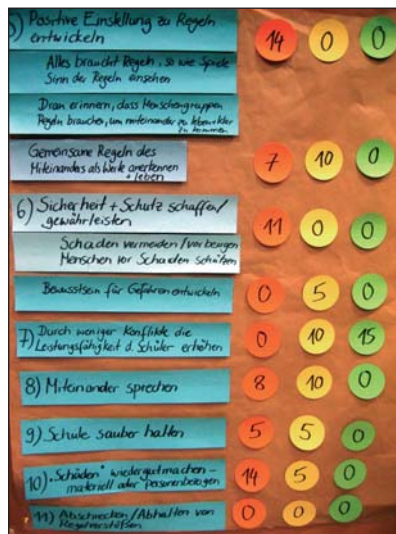 5) Positive Einstellung zu Regeln
entwickeln
14 0 0
Alles braucht Regeln, so wie Spiele
Sinn der Regeln einsehen
Dran erinnern, dass Menschengruppen
Regeln brauchen, um miteinander zu leben + klar
zu kommen
Gemeinsame Regeln des
Miteinanders als Werte anerkennen
+ leben
7 10 0
6) Sicherheit + Schutz schaffen/
gewährleisten
11 0 0
Schaden vermeiden/vorbeugen
Menschen vor Schaden schützen
Bewusstsein für Gefahren entwickeln
0 5 0
7) Durch weniger Konflikte die
Leistungsfähigkeit d. Schüler erhöhen
0 10 15
8) Miteinander sprechen
8 10 0
9) Schule sauber halten
5 5 0
10) "Schäden" wiedergutmachen –
materiell oder personenbezogen
14 5 0
11) Abschrecken/Abhalten von
Regelverstößen
0 0 0